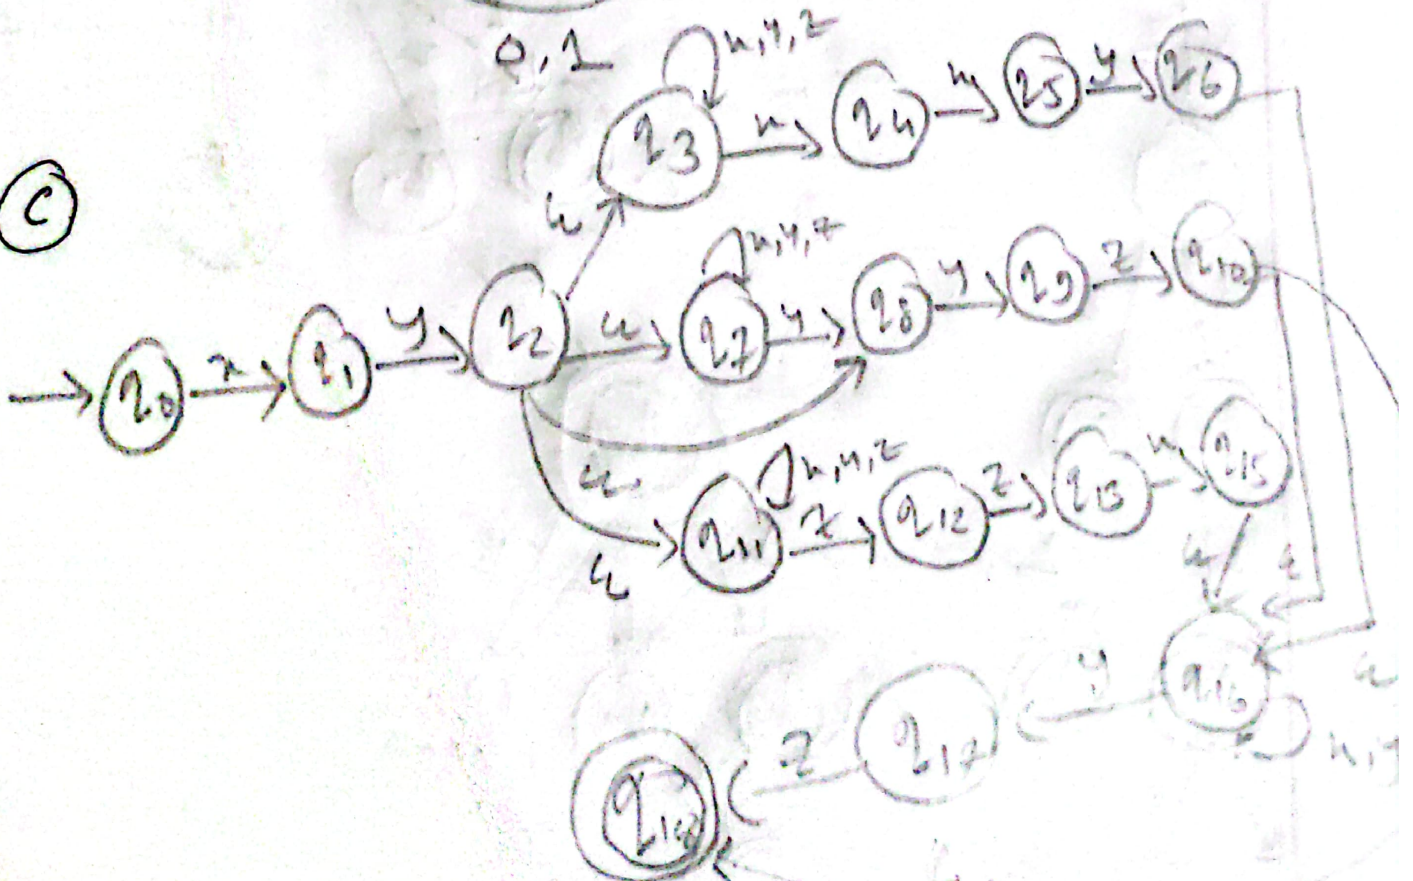 0, 1
x, y, z
q3 x q4 x q5 y q6
C
ε
x, y, z
q0 x q1 y q2 ε q7 y q8 y q9 z q10
ε
x, y, z
q11 z q12 z q13 x q15
ε
ε ε
q16 y q17 z
ε
q18